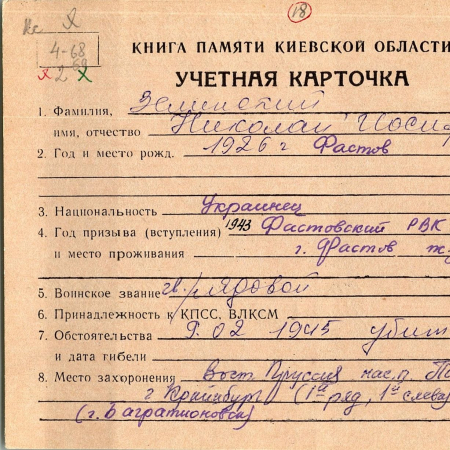 18
4-68
69
2
КНИГА ПАМЯТИ КИЕВСКОЙ ОБЛАСТИ
УЧЕТНАЯ КАРТОЧКА
1. Фамилия, Зелинский
имя, отчество Николай Иоси
2. Год и место рожд. 1926 г Фастов
3. Национальность Украинец
4. Год призыва (вступления) 1943 Фастовский РВК
и место проживания г. Фастов
5. Воинское звание рядовой
6. Принадлежность к КПСС, ВЛКСМ
7. Обстоятельства 9.02 1945 убит
и дата гибели
8. Место захоронения Вост. Пруссия нас. п.
г Крайцбург (1й ряд, 1й слева
(г. Багратионовск)